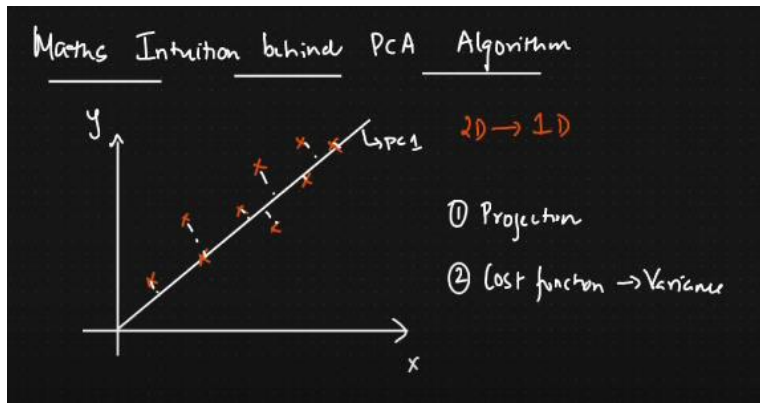 Maths Intuition behind PCA Algorithm
y
↳PC1
2D → 1D
① Projection
② Cost function → Variance
x